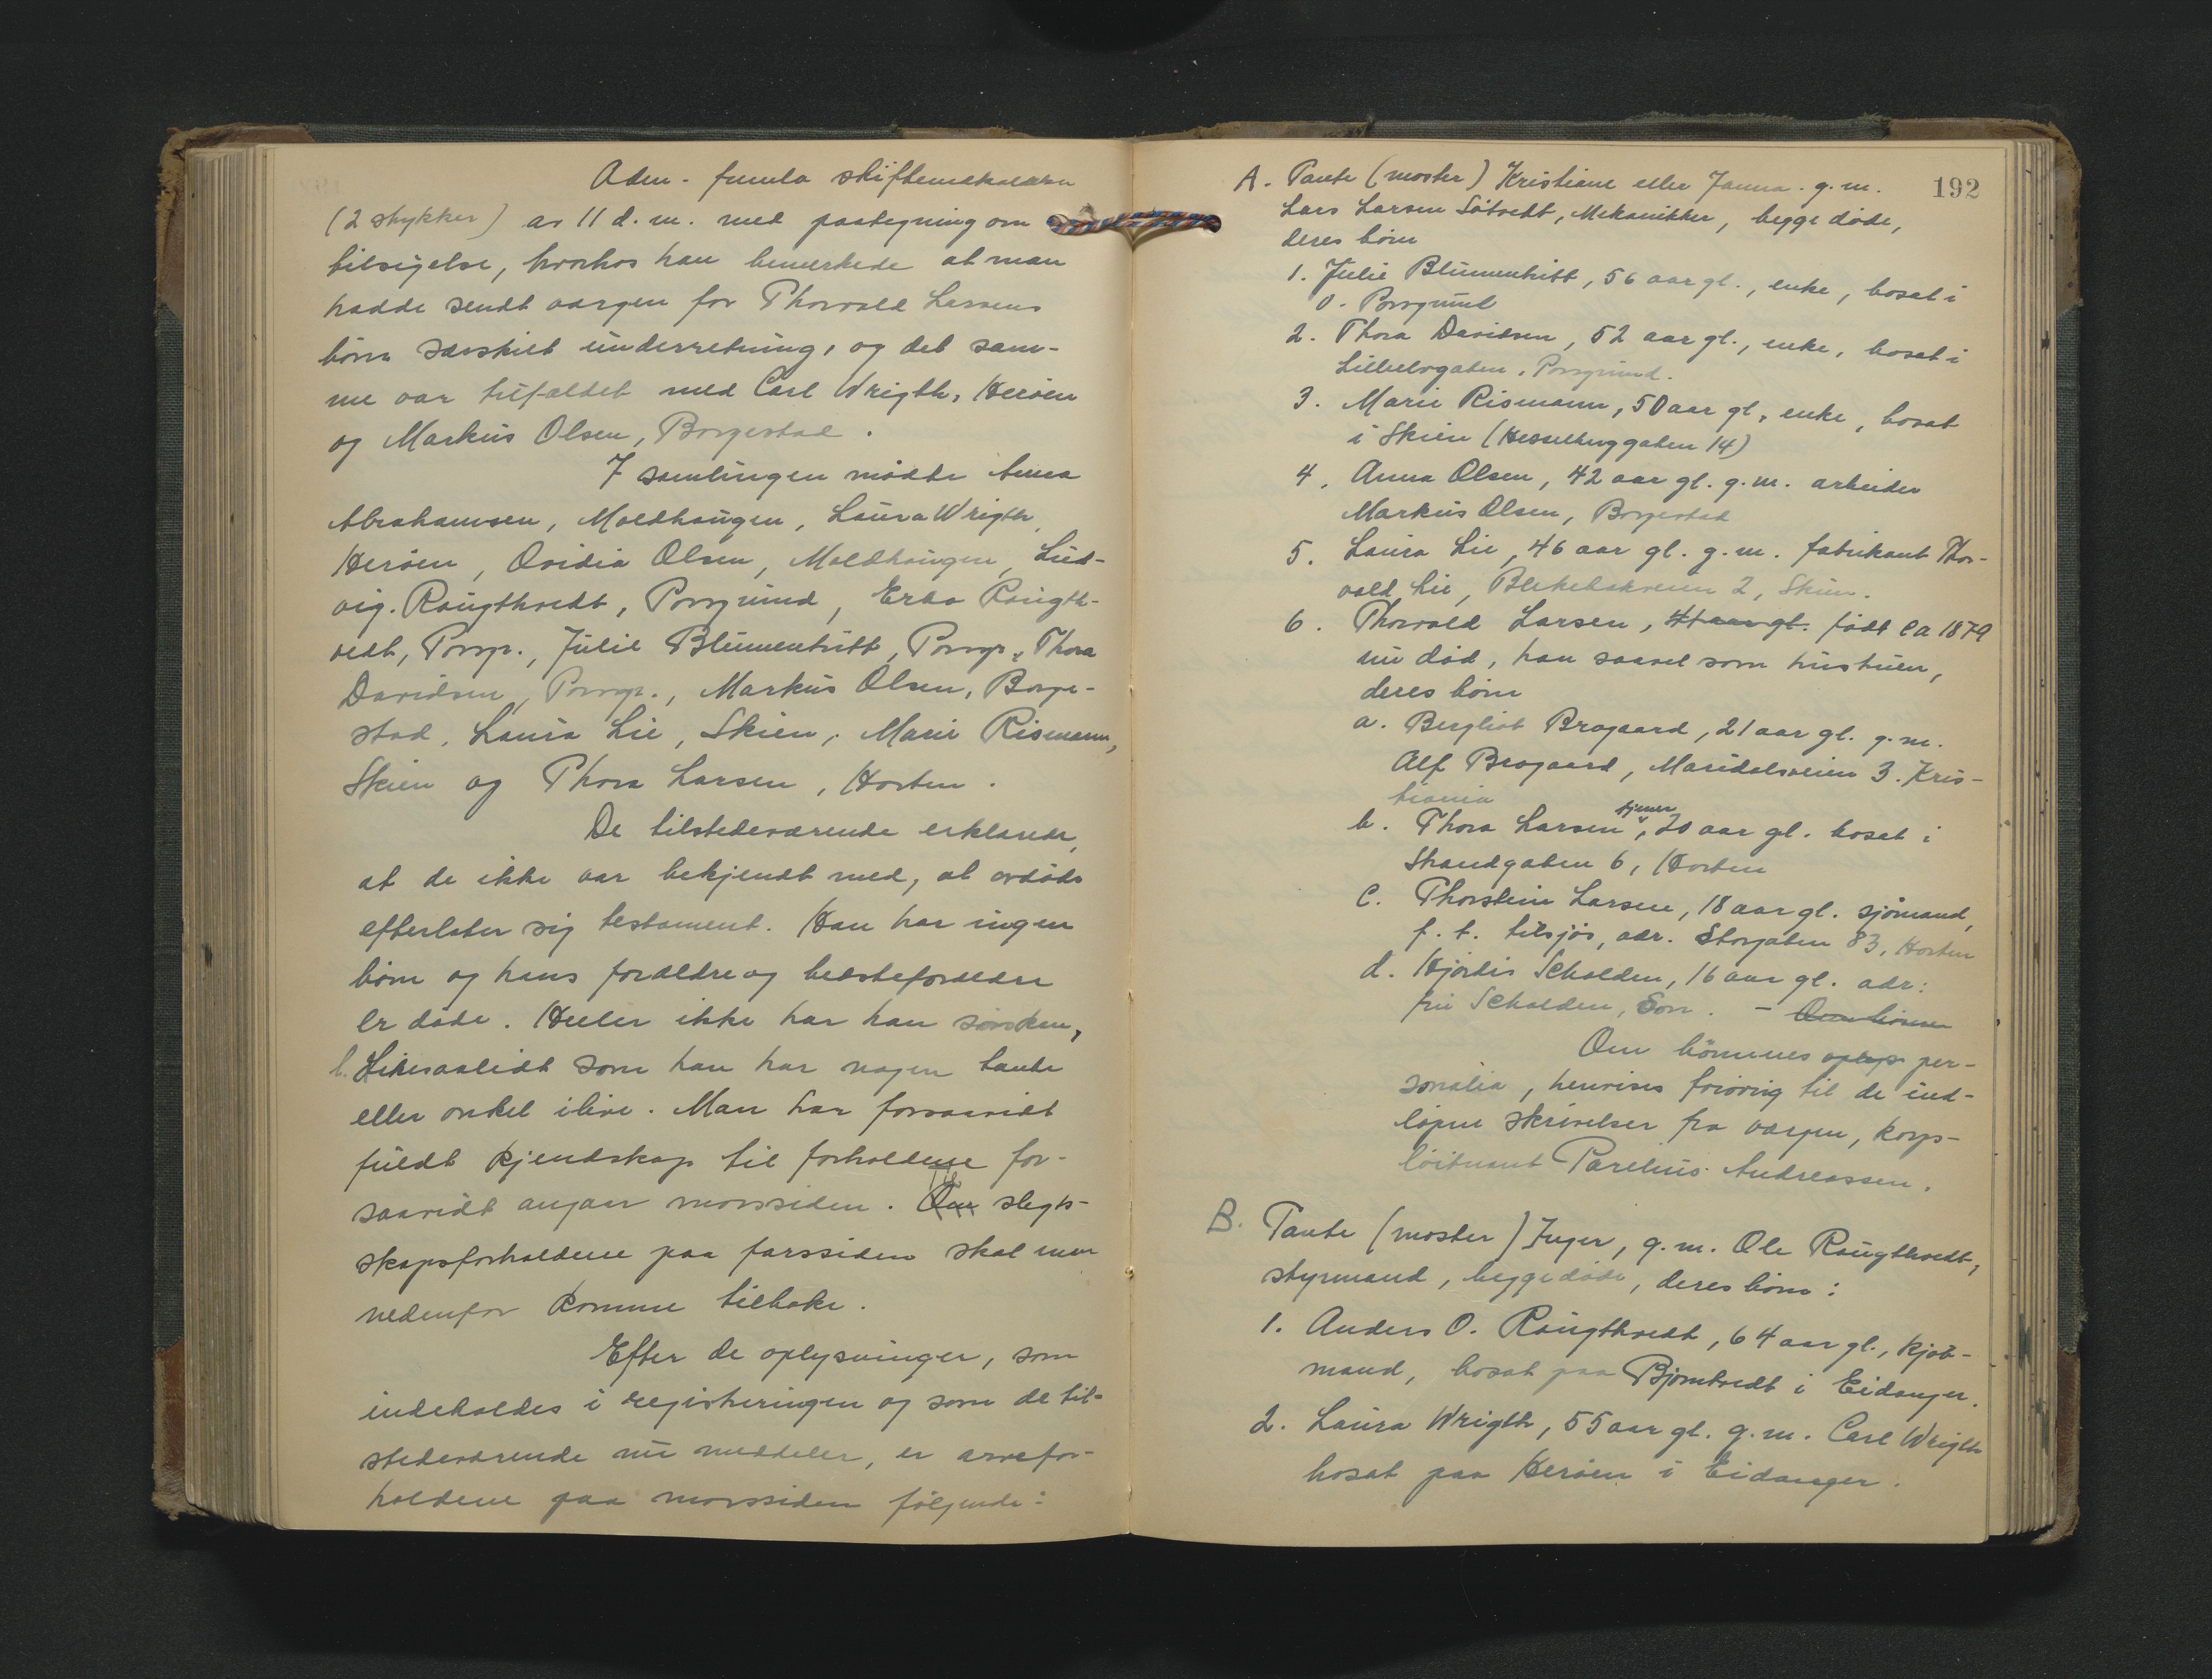 Adm. fremla skiftemarkalden
(2 stykker) av 11 d.m. med paategning om
tilsigelse, hvorhos han bemerkede at man
hadde sendt værgen for Thorvald Larsens
børn særskilt underretning, og det sam-
me var tilfældet med Carl Wrigth, Herøen
og Markus Olsen, Borgestad.
I samlingen mødte Anna
Abrahamsen, Moldhaugen, Laura Wrigth,
Herøen, Ovidia Olsen, Moldhaugen, Lud-
vig. Raugthvedt, Porsgrund, Erba Raugth-
vedt, Porsgr., Julie Blumentritt, Porsgr., Thora
Davidsen, Porsgr., Markus Olsen, Borge-
stad, Laura Lie, Skien, Marie Rismann,
Skien og Thora Larsen, Horten.
De tilstedeværende erklærer,
at de ikke var bekjendt med, at avdøde
efterlater sig testament. Han har ingen
børn og hans forældre og bedsteforældre
er døde. Heller ikke har han søsken,
l. Likesaalidt som han har nogen tante
eller onkel ilive. Man har forsaavidt
fuldt kjendskap til forholdene for-
saavidt angaar morssiden. Til slegt-
skapsforholdene paa farssiden skal man
nedenfor komme tilbake.
Efter de oplysninger, som
indeholdes i registreringen og som de til-
stedeværende nu meddeler, er arvefor-
holdene paa morssiden følgende:
192
A. Tante (moster) Kristiane eller Janna. g.m.
Lars Larsen Søtvedt, Mekanikker, begge døde,
deres børn
1. Julie Blumentritt, 56 aar gl., enke, bosat i
V. Porsgrund
2. Thora Davidsen, 52 aar gl., enke, bosat i
Lilleelvgaten, Porsgrund.
3. Marie Rismann, 50 aar gl., enke, bosat
i Skien (Hesselberggaten 14)
4. Anna Olsen, 42 aar gl. g.m. arbeider
Markus Olsen, Borgestad
5. Laura Lie, 46 aar gl. g.m. fabrikant Thor-
vald Lie, Blekebakveien 2, Skien.
6. Thorvald Larsen, 41 aar gl. født ca 1879
nu død, han saavel som hustruen,
deres børn
a. Bergliot Brogaard, 21 aar gl. g.m.
Alf Brogaard, Maridalsveien 3. Kris-
tiania
tjener
b. Thora Larsen, 20 aar gl. bosat i
Strandgaten 6, Horten
c. Thorstein Larsen, 18 aar gl. sjømand,
f.t. tilsjøs, adr. Storgaten 83, Horten
d. Hjørdis Scholden, 16 aar gl. adr:
fru Scholden, Son. - Om børnene
Om børnenes oplys per-
sonalia, henvises forøvrig til de ind-
løpne skrivelser fra værgen, korps-
løitnant Parelius Andreassen.
B. Tante (moster) Inger, g.m. Ole Raugthvedt,
styrmand, begge døde, deres børn:
1. Anders O. Raugthvedt, 64 aar gl., kjøb-
mand, bosat paa Bjørntvedt i Eidanger.
2. Laura Wrigth, 55 aar gl. g.m. Carl Wrigth
bosat paa Herøen i Eidanger.